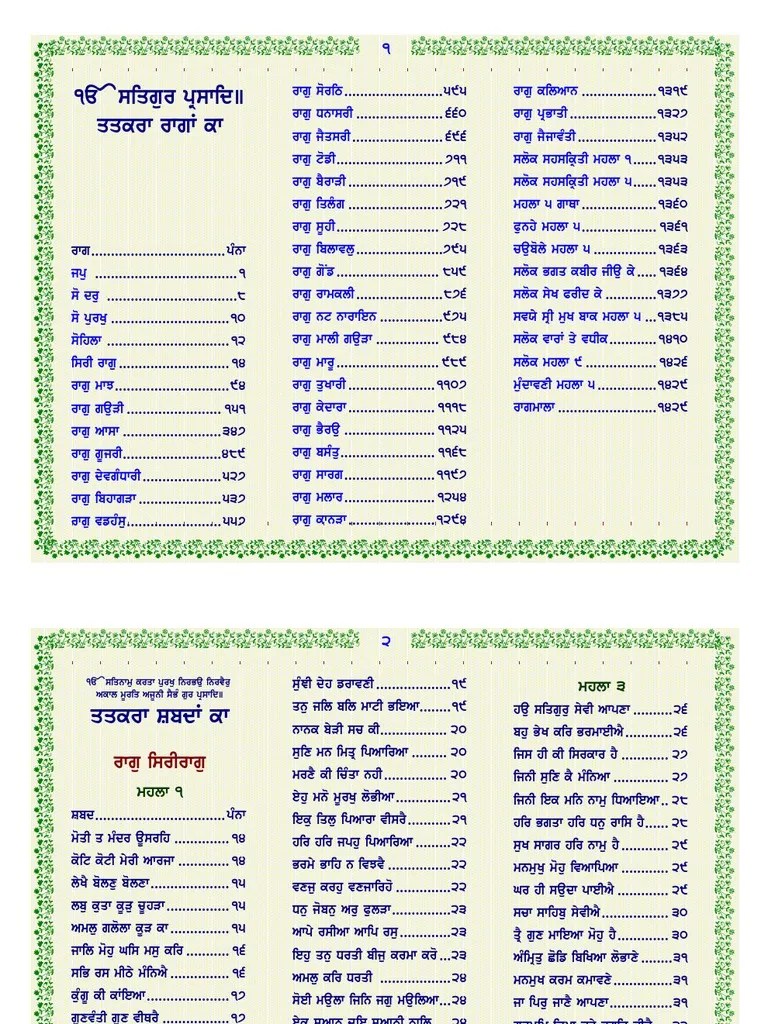 ੧
ੴ ਸਤਿਗੁਰ ਪ੍ਰਸਾਦਿ॥
ਤਤਕਰਾ ਰਾਗਾਂ ਕਾ
ਰਾਗ.................................ਪੰਨਾ
ਜਪੁ ...................................੧
ਸੋ ਦਰੁ ................................੮
ਸੋ ਪੁਰਖੁ .............................੧੦
ਸੋਹਿਲਾ ...............................੧੨
ਸਿਰੀ ਰਾਗੁ ............................੧੪
ਰਾਗੁ ਮਾਝ.............................੯੪
ਰਾਗੁ ਗਉੜੀ ........................ ੧੫੧
ਰਾਗੁ ਆਸਾ .........................੩੪੭
ਰਾਗੁ ਗੂਜਰੀ.........................੪੮੯
ਰਾਗੁ ਦੇਵਗੰਧਾਰੀ....................੫੨੭
ਰਾਗੁ ਬਿਹਾਗੜਾ .....................੫੩੭
ਰਾਗੁ ਵਡਹੰਸੁ........................੫੫੭
ਰਾਗੁ ਸੋਰਠਿ ........................੫੯੫
ਰਾਗੁ ਧਨਾਸਰੀ ......................੬੬੦
ਰਾਗੁ ਜੈਤਸਰੀ.......................੬੯੬
ਰਾਗੁ ਟੋਡੀ...........................੭੧੧
ਰਾਗੁ ਬੈਰਾੜੀ ........................੭੧੯
ਰਾਗੁ ਤਿਲੰਗ .........................੭੨੧
ਰਾਗੁ ਸੂਹੀ ...........................੭੨੮
ਰਾਗੁ ਬਿਲਾਵਲੁ ......................੭੯੫
ਰਾਗੁ ਗੋਂਡ ...........................੮੫੯
ਰਾਗੁ ਰਾਮਕਲੀ ......................੮੭੬
ਰਾਗੁ ਨਟ ਨਾਰਾਇਨ .................੯੭੫
ਰਾਗੁ ਮਾਲੀ ਗਉੜਾ .................੯੮੪
ਰਾਗੁ ਮਾਰੂ ...........................੯੮੯
ਰਾਗੁ ਤੁਖਾਰੀ .......................੧੧੦੭
ਰਾਗੁ ਕੇਦਾਰਾ ...................... ੧੧੧੮
ਰਾਗੁ ਭੈਰਉ ........................ ੧੧੨੫
ਰਾਗੁ ਬਸੰਤੁ......................... ੧੧੬੮
ਰਾਗੁ ਸਾਰਗ ....................... ੧੧੯੭
ਰਾਗੁ ਮਲਾਰ ....................... ੧੨੫੪
ਰਾਗੁ ਕਾਨੜਾ .......................੧੨੯੪
ਰਾਗੁ ਕਲਿਆਨ .....................੧੩੧੯
ਰਾਗੁ ਪ੍ਰਭਾਤੀ .......................੧੩੨੭
ਰਾਗੁ ਜੈਜਾਵੰਤੀ .....................੧੩੫੨
ਸਲੋਕ ਸਹਸਕ੍ਰਿਤੀ ਮਹਲਾ ੧......੧੩੫੩
ਸਲੋਕ ਸਹਸਕ੍ਰਿਤੀ ਮਹਲਾ ੫......੧੩੫੩
ਮਹਲਾ ੫ ਗਾਥਾ ....................੧੩੬੦
ਫੁਨਹੇ ਮਹਲਾ ੫.................... ੧੩੬੧
ਚਉਬੋਲੇ ਮਹਲਾ ੫ .................੧੩੬੩
ਸਲੋਕ ਭਗਤ ਕਬੀਰ ਜੀਉ ਕੇ .... ੧੩੬੪
ਸਲੋਕ ਸੇਖ ਫਰੀਦ ਕੇ ..............੧੩੭੭
ਸਵਯੇ ਸ੍ਰੀ ਮੁਖ ਬਾਕ ਮਹਲਾ ੫ ...੧੩੮੫
ਸਲੋਕ ਵਾਰਾਂ ਤੇ ਵਧੀਕ.............੧੪੧੦
ਸਲੋਕ ਮਹਲਾ ੯ ....................੧੪੨੬
ਮੁੰਦਾਵਣੀ ਮਹਲਾ ੫ .................੧੪੨੯
ਰਾਗਮਾਲਾ ..........................੧੪੨੯
੨
ੴ ਸਤਿਨਾਮੁ ਕਰਤਾ ਪੁਰਖੁ ਨਿਰਭਉ ਨਿਰਵੈਰੁ
ਅਕਾਲ ਮੂਰਤਿ ਅਜੂਨੀ ਸੈਭੰ ਗੁਰ ਪ੍ਰਸਾਦਿ॥
ਤਤਕਰਾ ਸ਼ਬਦਾਂ ਕਾ
ਰਾਗੁ ਸਿਰੀਰਾਗੁ
ਮਹਲਾ ੧
ਸ਼ਬਦ.................................ਪੰਨਾ
ਮੋਤੀ ਤ ਮੰਦਰ ਊਸਰਹਿ ...............੧੪
ਕੋਟਿ ਕੋਟੀ ਮੇਰੀ ਆਰਜਾ .............੧੪
ਲੇਖੈ ਬੋਲਣੁ ਬੋਲਣਾ....................੧੫
ਲਬੁ ਕੁਤਾ ਕੂੜੁ ਚੂਹੜਾ................੧੫
ਅਮਲੁ ਗਲੋਲਾ ਕੂੜ ਕਾ ...............੧੫
ਜਾਲਿ ਮੋਹੁ ਘਸਿ ਮਸੁ ਕਰਿ ...........੧੬
ਸਭਿ ਰਸ ਮੀਠੇ ਮੰਨਿਐ ...............੧੬
ਕੁੰਗੂ ਕੀ ਕਾਂਇਆ.....................੧੭
ਗੁਣਵੰਤੀ ਗੁਣ ਵੀਥਰੈ .................੧੭
ਸੁੰਞੀ ਦੇਹ ਡਰਾਵਣੀ ..................੧੯
ਤਨੁ ਜਲਿ ਬਲਿ ਮਾਟੀ ਭਇਆ........੧੯
ਨਾਨਕ ਬੇੜੀ ਸਚ ਕੀ.................. ੨੦
ਸੁਣਿ ਮਨ ਮਿਤ੍ਰ ਪਿਆਰਿਆ ......... ੨੦
ਮਰਣੈ ਕੀ ਚਿੰਤਾ ਨਹੀ................. ੨੦
ਏਹੁ ਮਨੋ ਮੂਰਖੁ ਲੋਭੀਆ..............੨੧
ਇਕੁ ਤਿਲੁ ਪਿਆਰਾ ਵੀਸਰੈ...........੨੧
ਹਰਿ ਹਰਿ ਜਪਹੁ ਪਿਆਰਿਆ .........੨੨
ਭਰਮੇ ਭਾਹਿ ਨ ਵਿਝਵੈ ................੨੨
ਵਣਜੁ ਕਰਹੁ ਵਣਜਾਰਿਹੋ ..............੨੨
ਧਨੁ ਜੋਬਨੁ ਅਰੁ ਫੁਲੜਾ...............੨੩
ਆਪੇ ਰਸੀਆ ਆਪਿ ਰਸੁ.............੨੩
ਇਹੁ ਤਨੁ ਧਰਤੀ ਬੀਜੁ ਕਰਮਾ ਕਰੋ ...੨੩
ਅਮਲੁ ਕਰਿ ਧਰਤੀ ...................੨੪
ਸੋਈ ਮਉਲਾ ਜਿਨਿ ਜਗੁ ਮਉਲਿਆ...੨੪
ਏਕੁ ਸੁਆਨੁ ਦੁਇ ਸੁਆਨੀ ਨਾਲਿ ....੨੪
ਮਹਲਾ ੩
ਹਉ ਸਤਿਗੁਰੁ ਸੇਵੀ ਆਪਣਾ ..........੨੬
ਬਹੁ ਭੇਖ ਕਰਿ ਭਰਮਾਈਐ.............੨੬
ਜਿਸ ਹੀ ਕੀ ਸਿਰਕਾਰ ਹੈ .............੨੭
ਜਿਨੀ ਸੁਣਿ ਕੈ ਮੰਨਿਆ ...............੨੭
ਜਿਨੀ ਇਕ ਮਨਿ ਨਾਮੁ ਧਿਆਇਆ.. ੨੮
ਹਰਿ ਭਗਤਾ ਹਰਿ ਧਨੁ ਰਾਸਿ ਹੈ......੨੮
ਸੁਖ ਸਾਗਰੁ ਹਰਿ ਨਾਮੁ ਹੈ............੨੯
ਮਨਮੁਖੁ ਮੋਹੁ ਵਿਆਪਿਆ ............੨੯
ਘਰ ਹੀ ਸਉਦਾ ਪਾਈਐ ..............੨੯
ਸਚਾ ਸਾਹਿਬੁ ਸੇਵੀਐ................. ੩੦
ਤ੍ਰੈ ਗੁਣ ਮਾਇਆ ਮੋਹੁ ਹੈ............. ੩੦
ਅੰਮ੍ਰਿਤੁ ਛੋਡਿ ਬਿਖਿਆ ਲੋਭਾਣੇ .......੩੧
ਮਨਮੁਖ ਕਰਮ ਕਮਾਵਣੇ ..............੩੧
ਜਾ ਪਿਰੁ ਜਾਣੈ ਆਪਣਾ...............੩੧